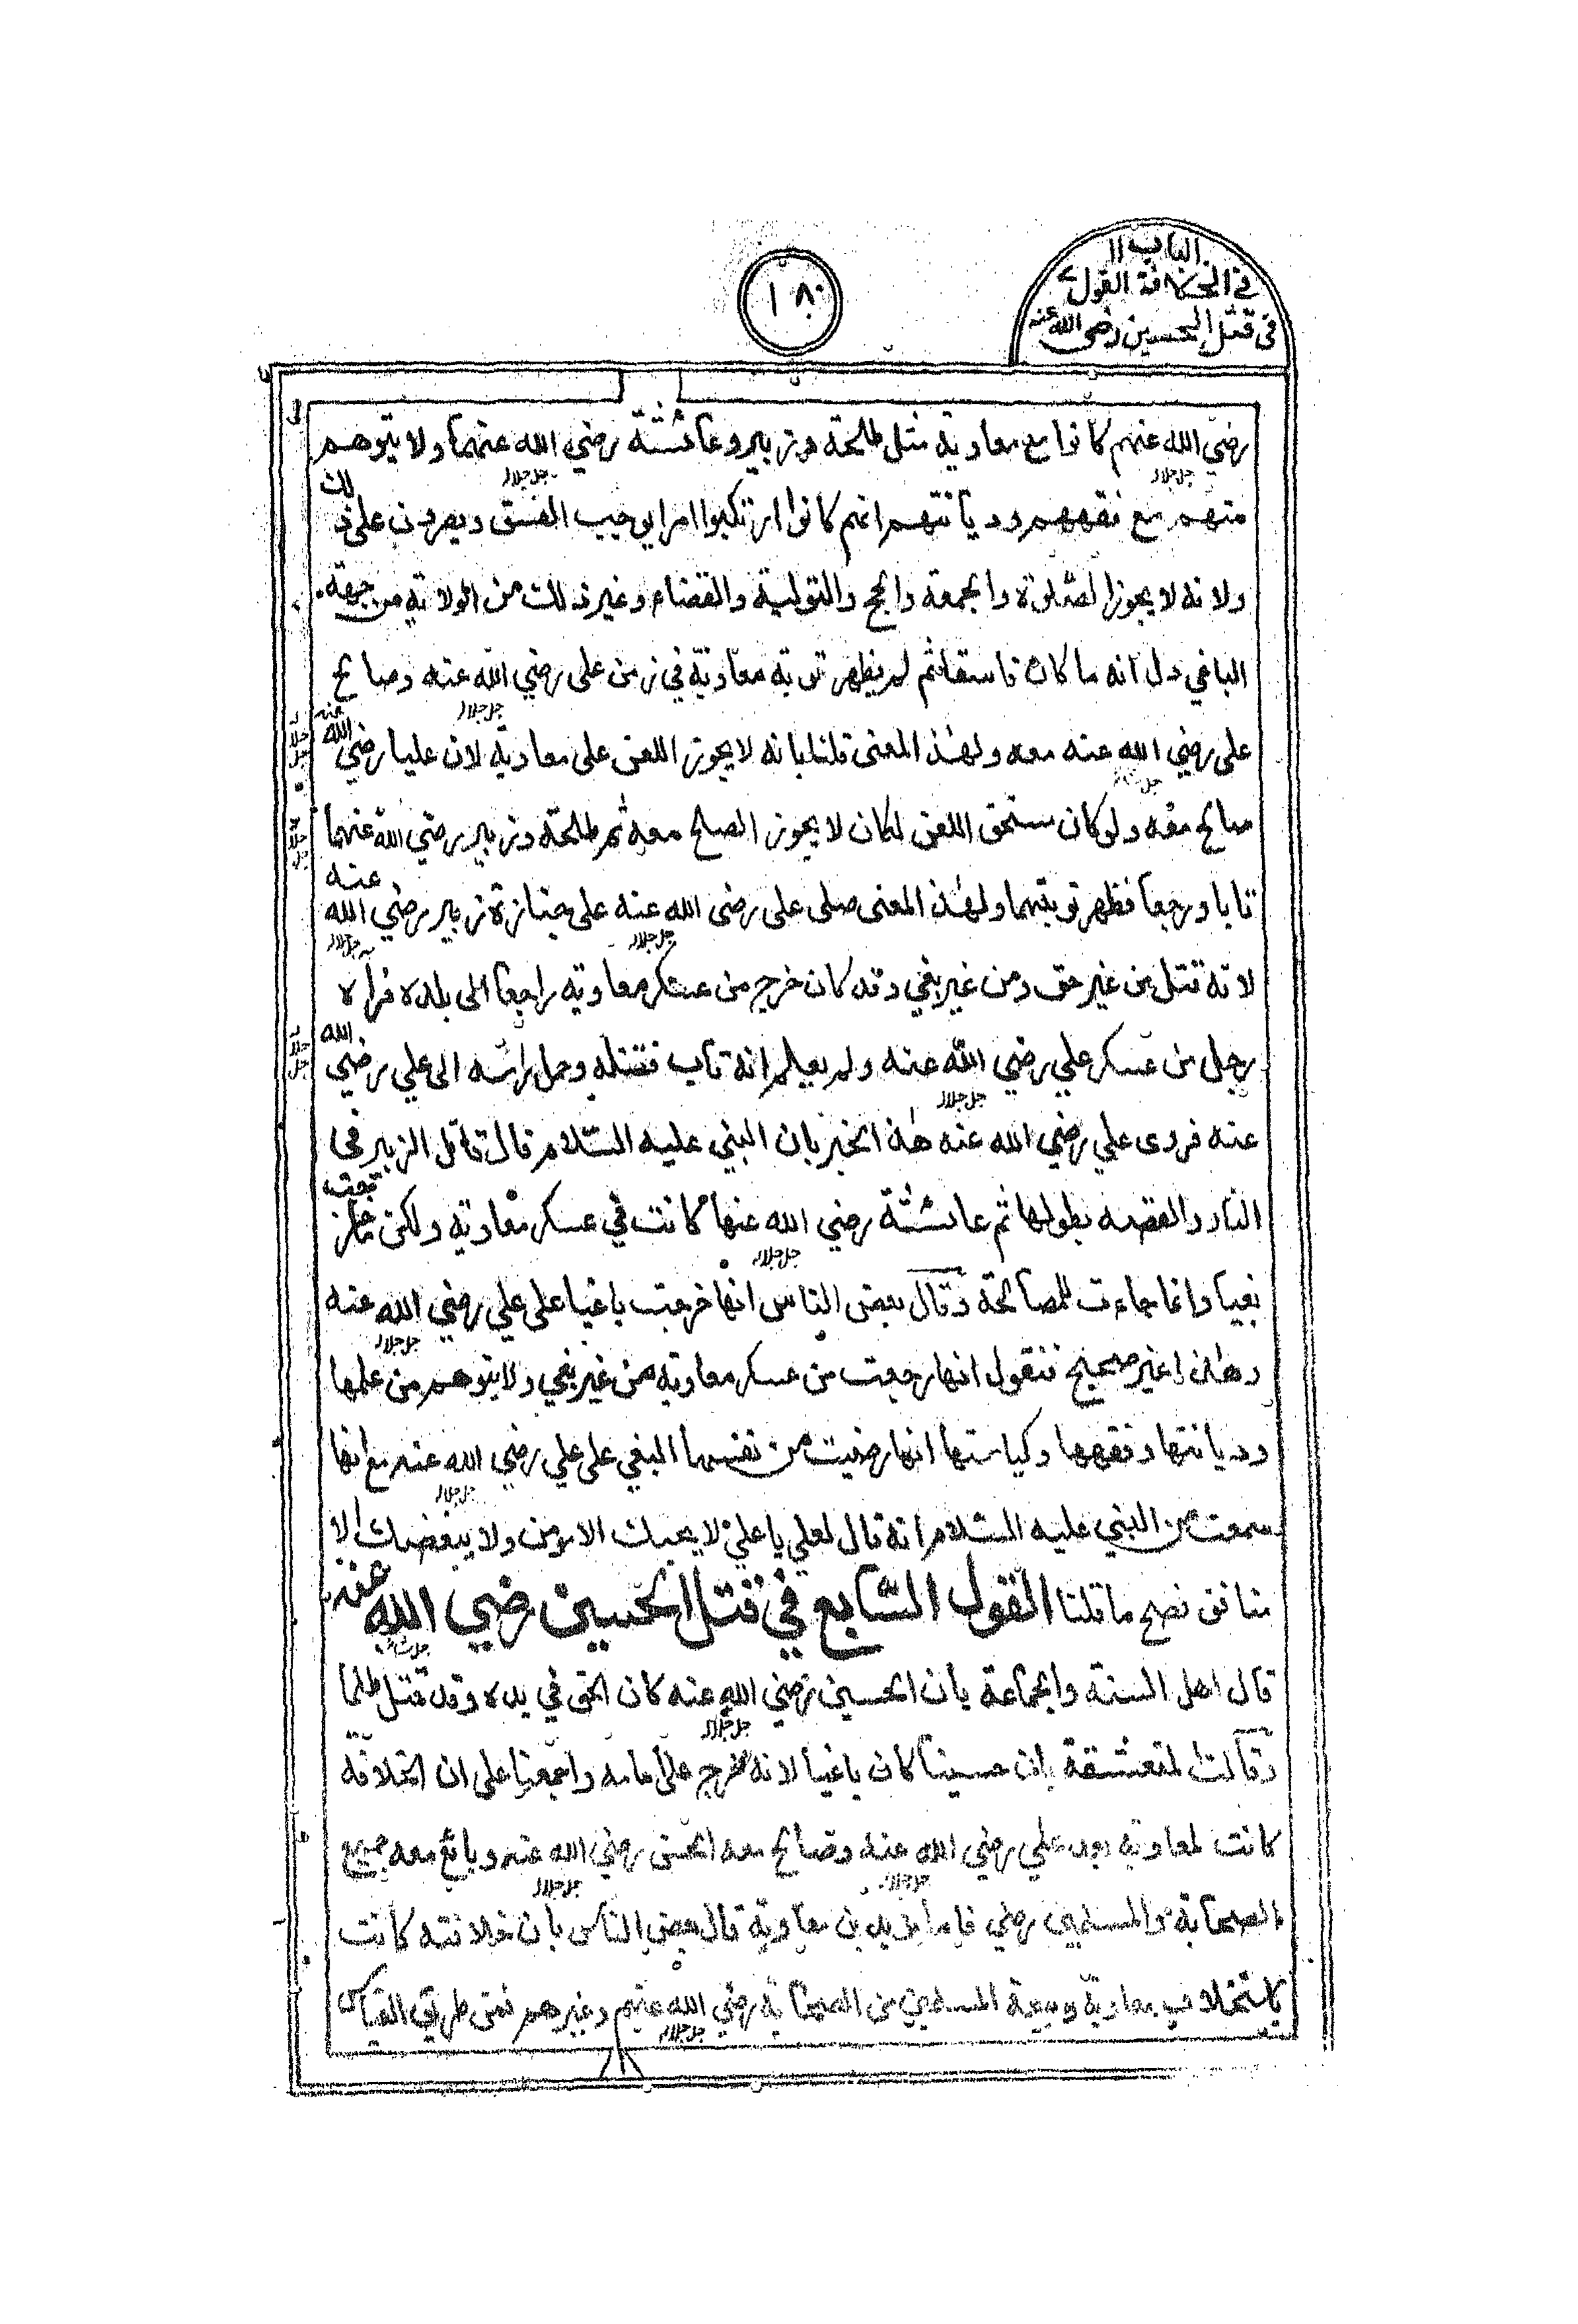 الباب ١١
في الخلافة القول ٧
في قتل الحسين رضى الله عنه
١٨٠
رضي الله عنهم كانوا مع معاوية مثل طلحة وزبير وعائشة رضي الله عنهما ولا يتوهم
منهم مع فقههم وديانتهم انهم كانوا ارتكبوا امرا يوجب الفسق ويصرون على ذلك
ولانه لا يجوز الصلوة والجمعة والحج والتولية والقضاء وغير ذلك من الولاية من جهة
الباغي دل انه ما كان فاسقا ثم لم يظهر توبة معاوية في زمن على رضي الله عنه وصالح
على رضي الله عنه معه ولهذ المعنى قلنا بانه لا يجوز اللعن على معاوية لان عليا رضي الله عنه
صالح معه ولو كان ستحق اللعن لكان لا يجوز الصلح معه ثم طلحة وزبير رضي الله عنهما
تابا ورجعا فظهر توبتهما ولهذ المعنى صلى على رضى الله عنه على جنازة زبير رضي الله عنه
لانه قتل من غير حق ومن غير بغي وقد كان خرج من عسكر معاوية راجعا الى بلده فرآه
رجل من عسكر علي رضي الله عنه ولم يعلم انه تاب فقتله وحمل رأسه الى علي رضي الله
عنه فروى علي رضي الله عنه هذ الخبر بان النبي عليه السلام قال قاتل الزبير فى
النار والقصة بطولها ثم عائشة رضي الله عنها كانت في عسكر معاوية ولكن
بغيا وانما جاءت للمصالحة وقال بعض الناس انها خرجت باغيا على علي رضي الله عنه
وهذا غير صحيح فنقول انها رجعت من عسكر معاوية من غير بغي ولا يتوهم من علمها
وديانتها وفقهها وكياستها انها رضيت من نفسها البغي على علي رضي الله عنه مع انها
سمعت من النبي عليه السلام انه قال لعلي يا علي لا يحبك الا مومن ولا يبغضك الا
منافق نصح ما قلنا القول السابع في قتل الحسين رضي الله عنه
قال اهل السنة والجماعة بأن الحسين رضي الله عنه كان الحق في يده وقد قتل ظلما
وقالت المتعشقة بان حسينا كان باغيا لانه خرج على امامه واجمعنا على ان الخلافة
كانت لمعاوية بعد علي رضي الله عنه وصالح معه الحسن رضي الله عنه وبايع معه جميع
الصحابة والمسلمين رضي فاما يزيد بن معاوية قال بعض الناس بأن خلافته كانت
باستخلاف معاوية وبيعة المسلمين من الصحابة رضي الله عنهم وغيرهم فمن طريق القياس